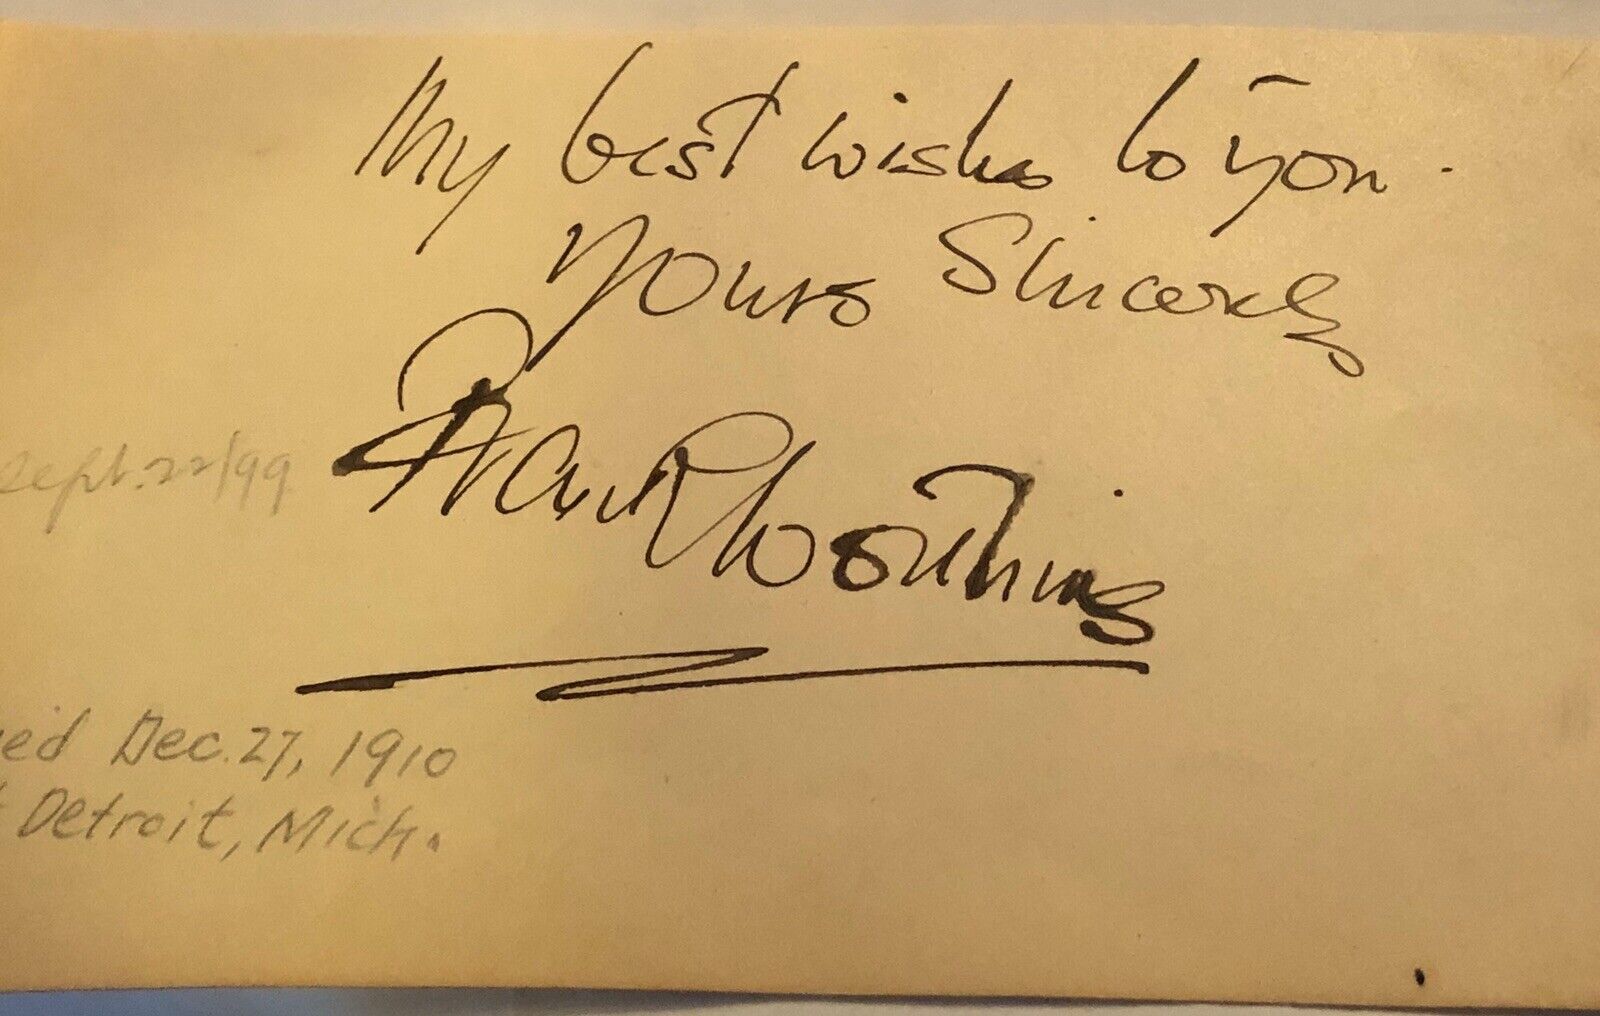 My best wishes to you.
Yours Sincerely
Frank Worthing
Sept. 22/99
ed Dec. 27, 1910
Detroit, Mich.